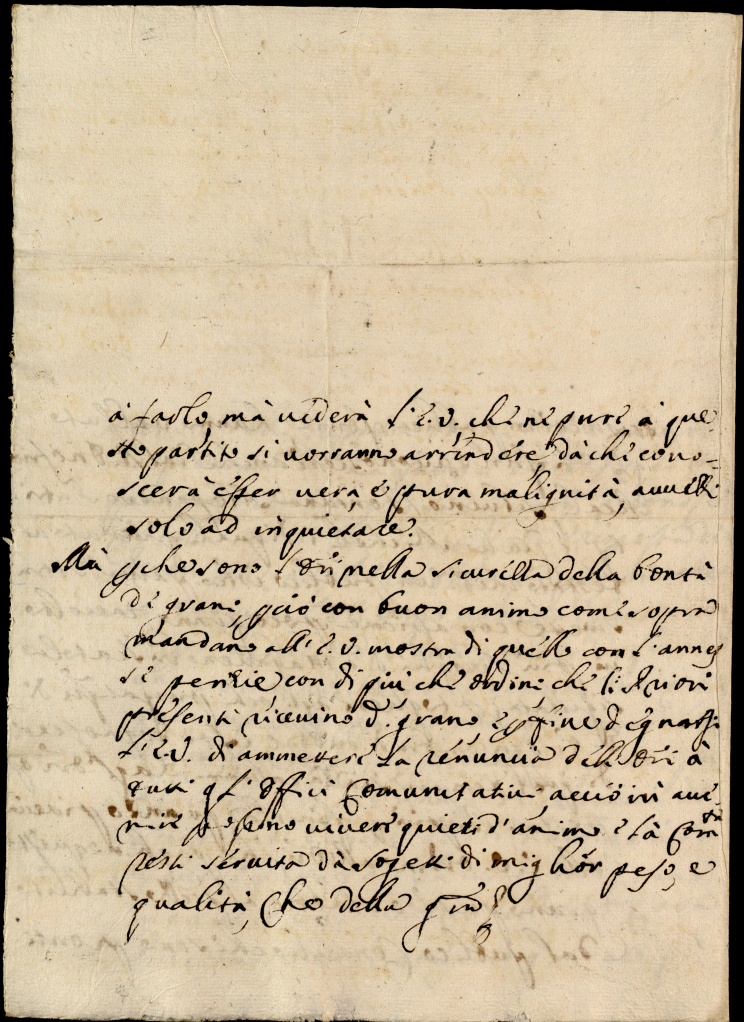 à farlo, mà vederà l'E.V. che ne pure à que-
sto partito si vorranno arrendere, dà che cono-
scerà esser vera, e pura malignità,
solo ad inquietare.
Mà perche sono l'Ori nella sicurezza della bontà
de grani, perciò con buon animo come sopra
mandano all'E.V. mostra di quello con l'annes
se perizie con di più che ordini che li Priori
presenti ricevino d.º grano, e per fine degnarsi
l'E.V. di ammettere la renuncia dell'Ori à
tutti gl'offici Comunitativi, acciò in ave-
nire possino vivere quieti d'animo e la Comtà
resti servita dà sogetti di miglior peso, e
qualità, Che della gra